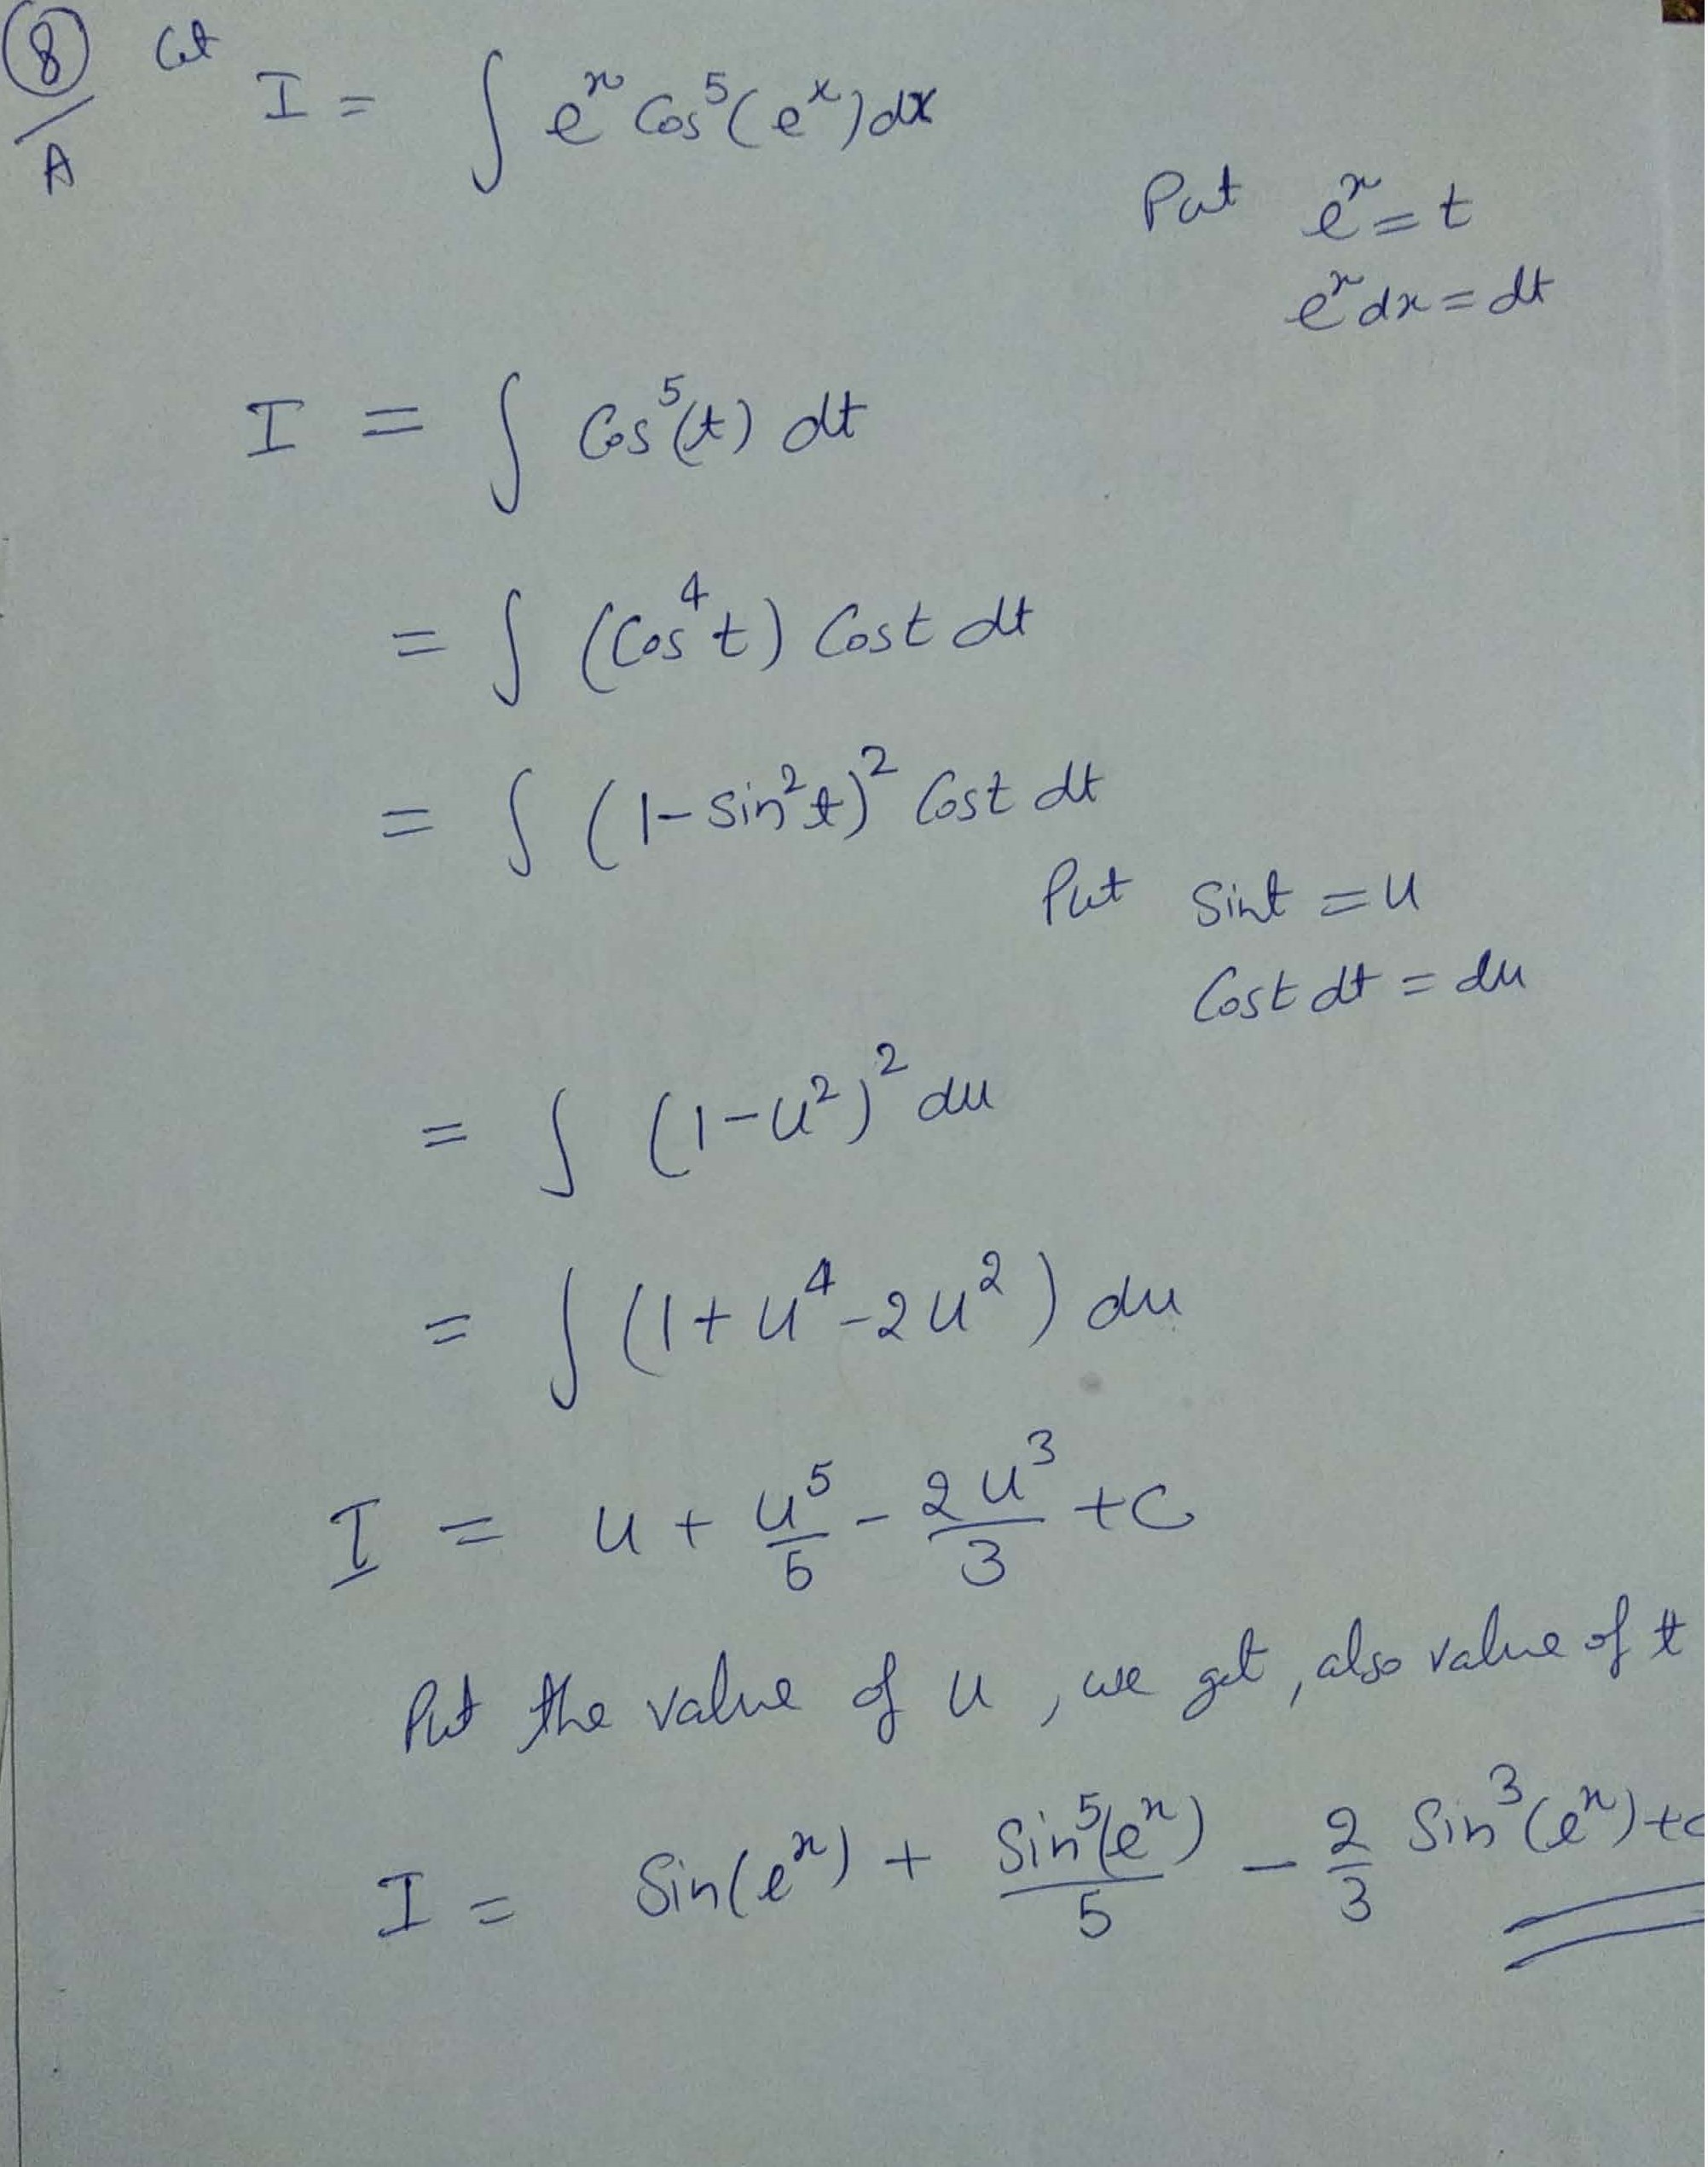 ⑧/A Let I = ∫ eˣ Cos⁵(eˣ) dx
Put eˣ = t
eˣ dx = dt
I = ∫ Cos⁵(t) dt
= ∫ (Cos⁴t) Cost dt
= ∫ (1-Sin²t)² Cost dt
Put Sint = u
Cost dt = du
= ∫ (1-u²)² du
= ∫ (1+u⁴-2u²) du
I = u + u⁵/5 - 2u³/3 + C
Put the value of u, we get, also value of t
I = Sin(eˣ) + Sin⁵(eˣ)/5 - 2/3 Sin³(eˣ) + C